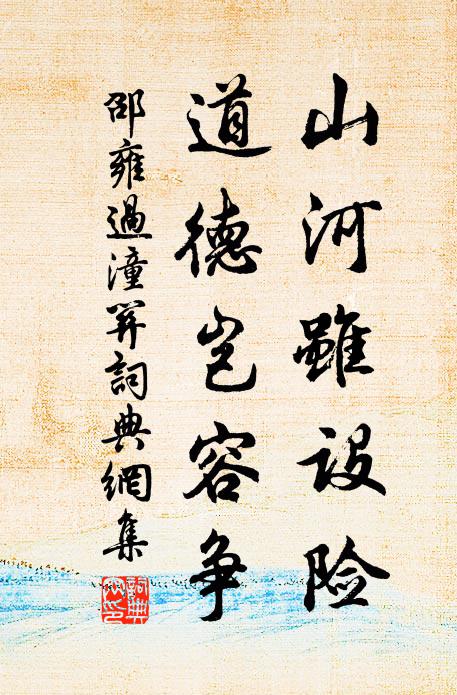 山河雖设险
道德岂容争
邵雍過潼关詞典網集